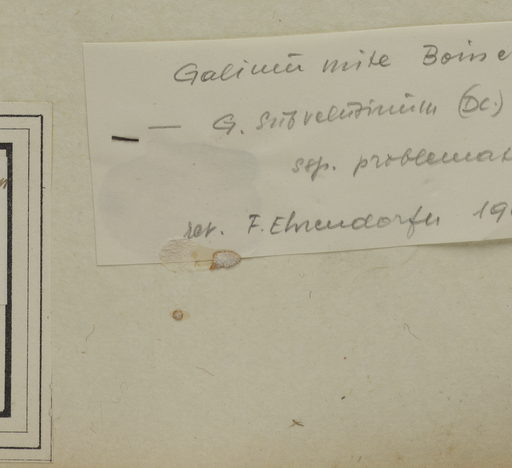 Galium mite Boiss e
— G. subvelutinum (DC.)
ssp. problemat
rev. F. Ehrendorfer 19